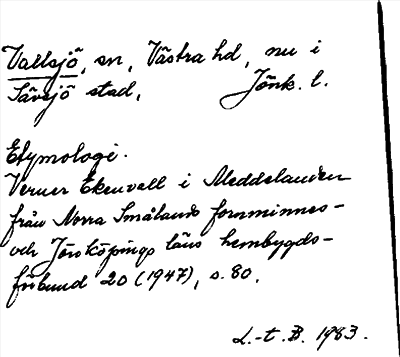 Vallsjö, sn, Västra hd, nu i
Sävsjö stad, Jönk. l.
Etymologi.
Verner Ekenvall i Meddelanden
från Norra Smålands fornminnes-
och Jönköpings läns hembygds-
förbund 20 (1947), s. 80.
L.-t. B. 1983.